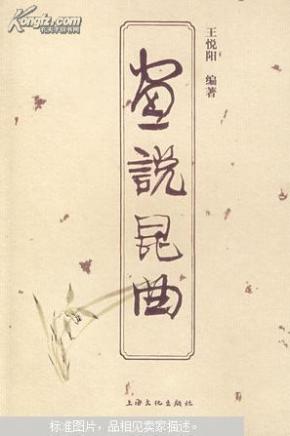 Kongfz.com
孔夫子旧书网
王悦阳 编著
画說昆曲
上海文化出版社
标准图片，品相见卖家描述。